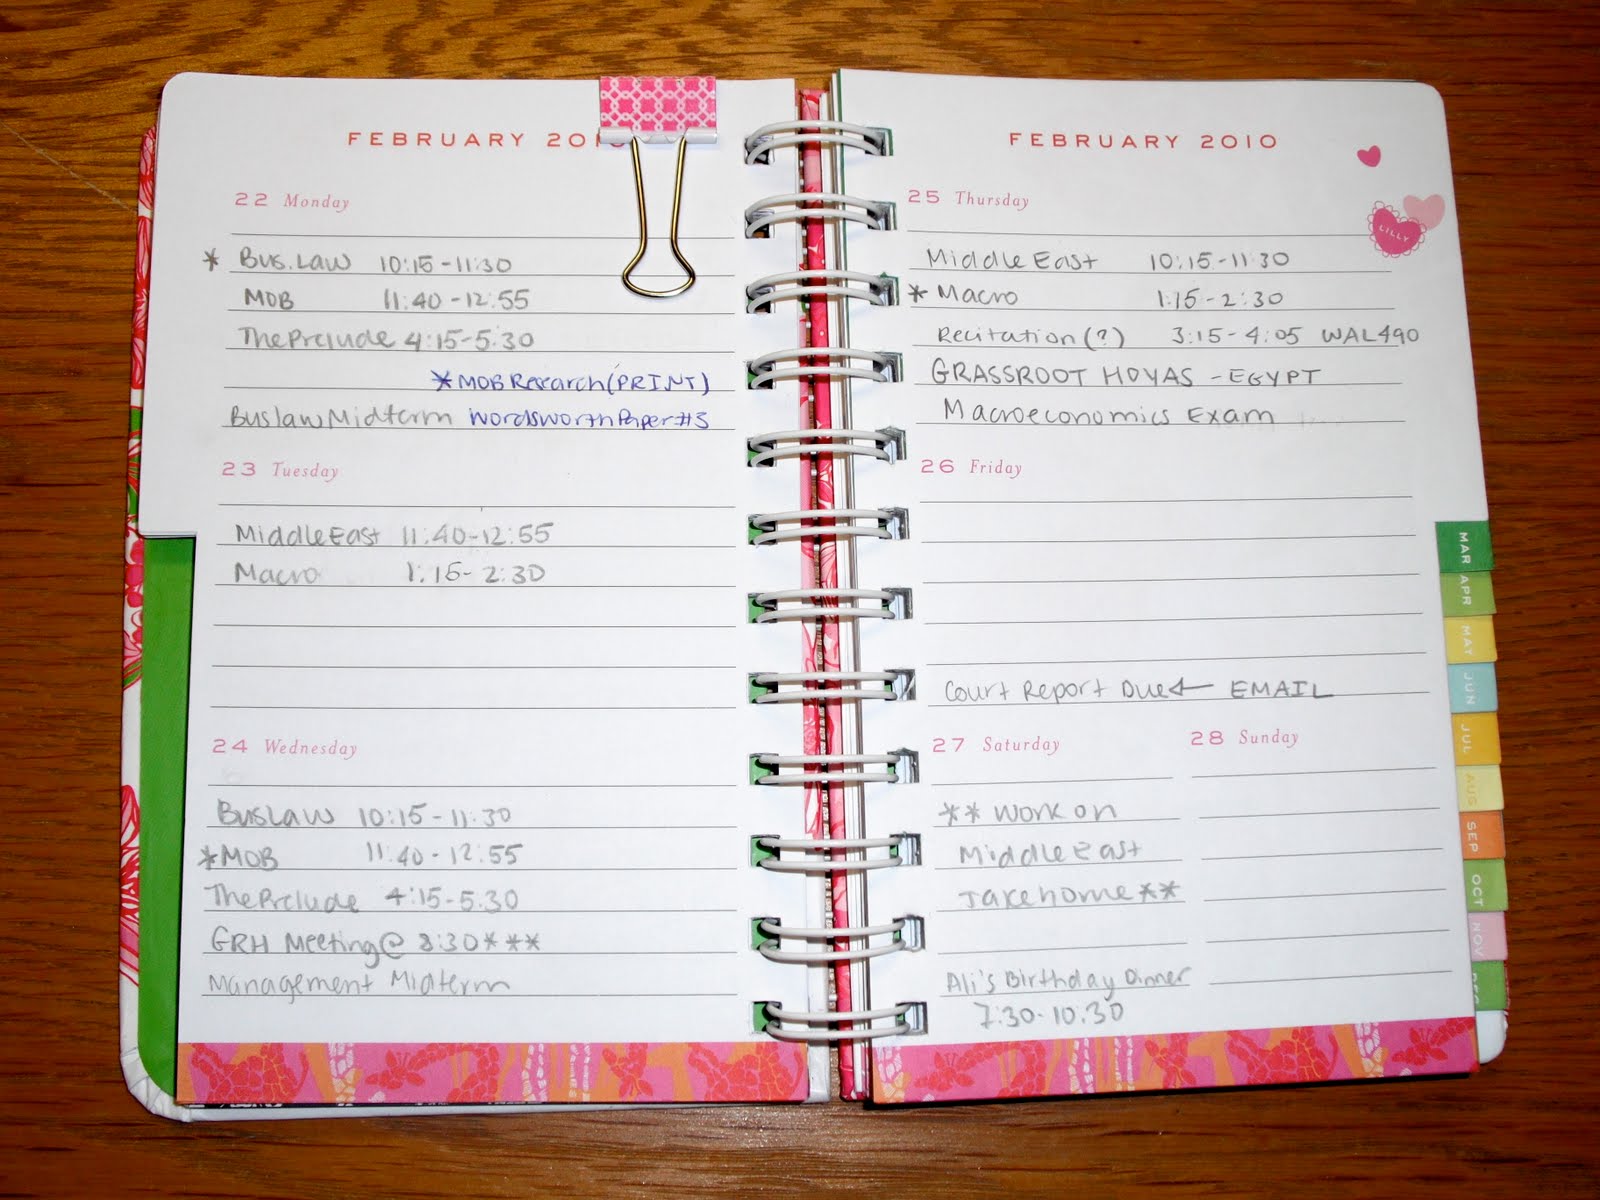 FEBRUARY 201
22 Monday
* Bus.Law 10:15-11:30
MOB 11:40-12:55
The Prelude 4:15-5:30
*MOB Research (PRINT)
Buslaw Midterm Wordsworth Paper #3
23 Tuesday
Middle East 11:40-12:55
Macro 1:15-2:30
24 Wednesday
Buslaw 10:15-11:30
*MOB 11:40-12:55
The Prelude 4:15-5:30
GRH Meeting@ 8:30***
Management Midterm
FEBRUARY 2010
LILLY
25 Thursday
Middle East 10:15-11:30
* Macro 1:15-2:30
Recitation(?) 3:15-4:05 WAL490
GRASSROOT HOYAS - EGYPT
Macroeconomics Exam
26 Friday
Court Report Due← EMAIL
27 Saturday
** Work on
Middle East
Takehome**
Ali's Birthday Dinner
7:30-10:30
28 Sunday
MAR
APR
MAY
JUN
JUL
AUG
SEP
OCT
NOV
DEC